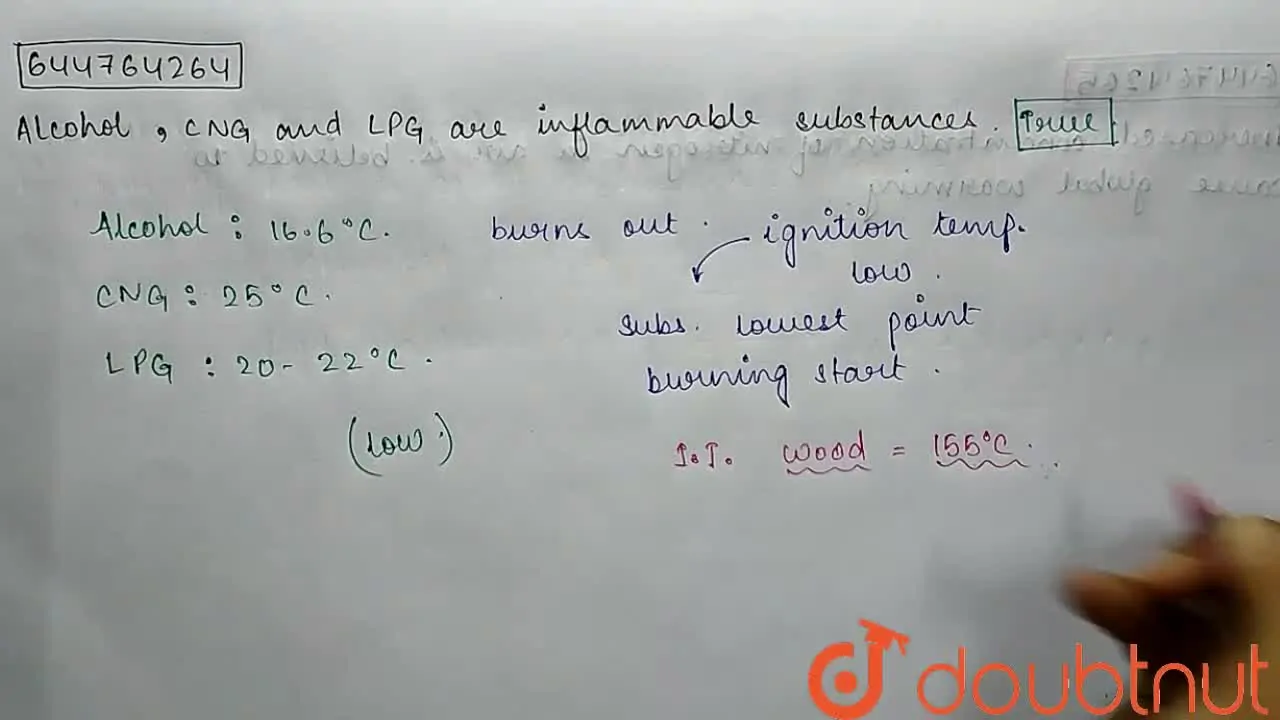 644764264
Alcohol, CNG and LPG are inflammable substances. True.
Alcohol : 16.6°C. burns out. ignition temp.
low.
CNG : 25°C.
subs. lowest point
LPG : 20 - 22°C.
burning start.
(low.)
I.T. wood = 155°C.
doubtnut